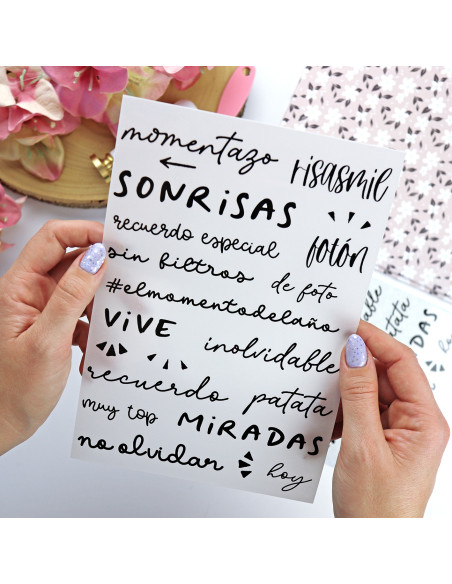 momentazo risasmil
SONRISAS
recuerdo especial fotón
sin filtros de foto
#elmomentodelaño
VIVE inolvidable
recuerdo patata
muy top MIRADAS
no olvidar hoy
able
patata
DAS